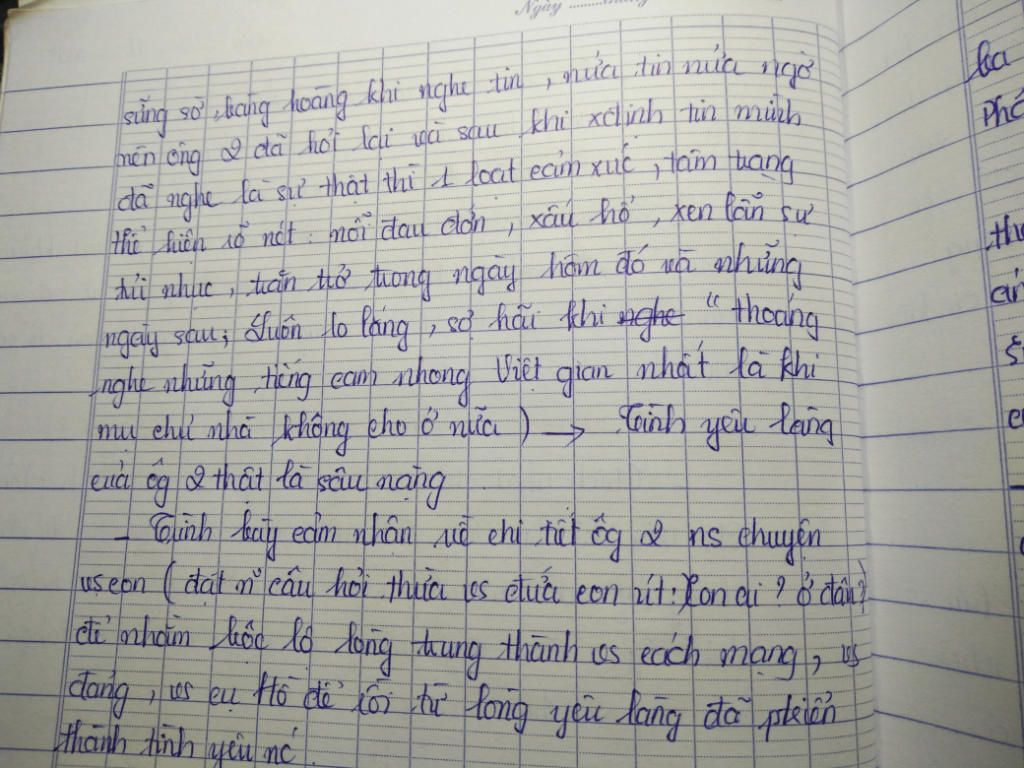 Ngày
sững sờ, bàng hoàng khi nghe tin, nửa tin nửa ngờ
nên ông 2 đã hỏi lại và sau khi xđịnh tin mình
đã nghe là sự thật thì 1 loạt cảm xúc, tâm trạng
thể hiện rõ nét: nỗi đau đớn, xấu hổ, xen lẫn sự
tủi nhục, trằn trở trong ngày hôm đó và những
ngày sau; luôn lo lắng, sợ hãi khi nghe "thoáng
nghe những tiếng cam nhong Việt gian nhất là khi
mụ chủ nhà không cho ở nữa) → Tình yêu làng
của ôg 2 thật là sâu nặng
- Trình bày cảm nhận về chi tiết ôg 2 ns chuyện
vs con (đặt n~ câu hỏi thừa vs đứa con út: Con ai? Ở đâu?
để nhằm bộc lộ lòng trung thành vs cách mạng, vs
đảng, vs cụ Hồ để rồi từ lòng yêu làng đã
thành tình yêu nc.
ba
Phó